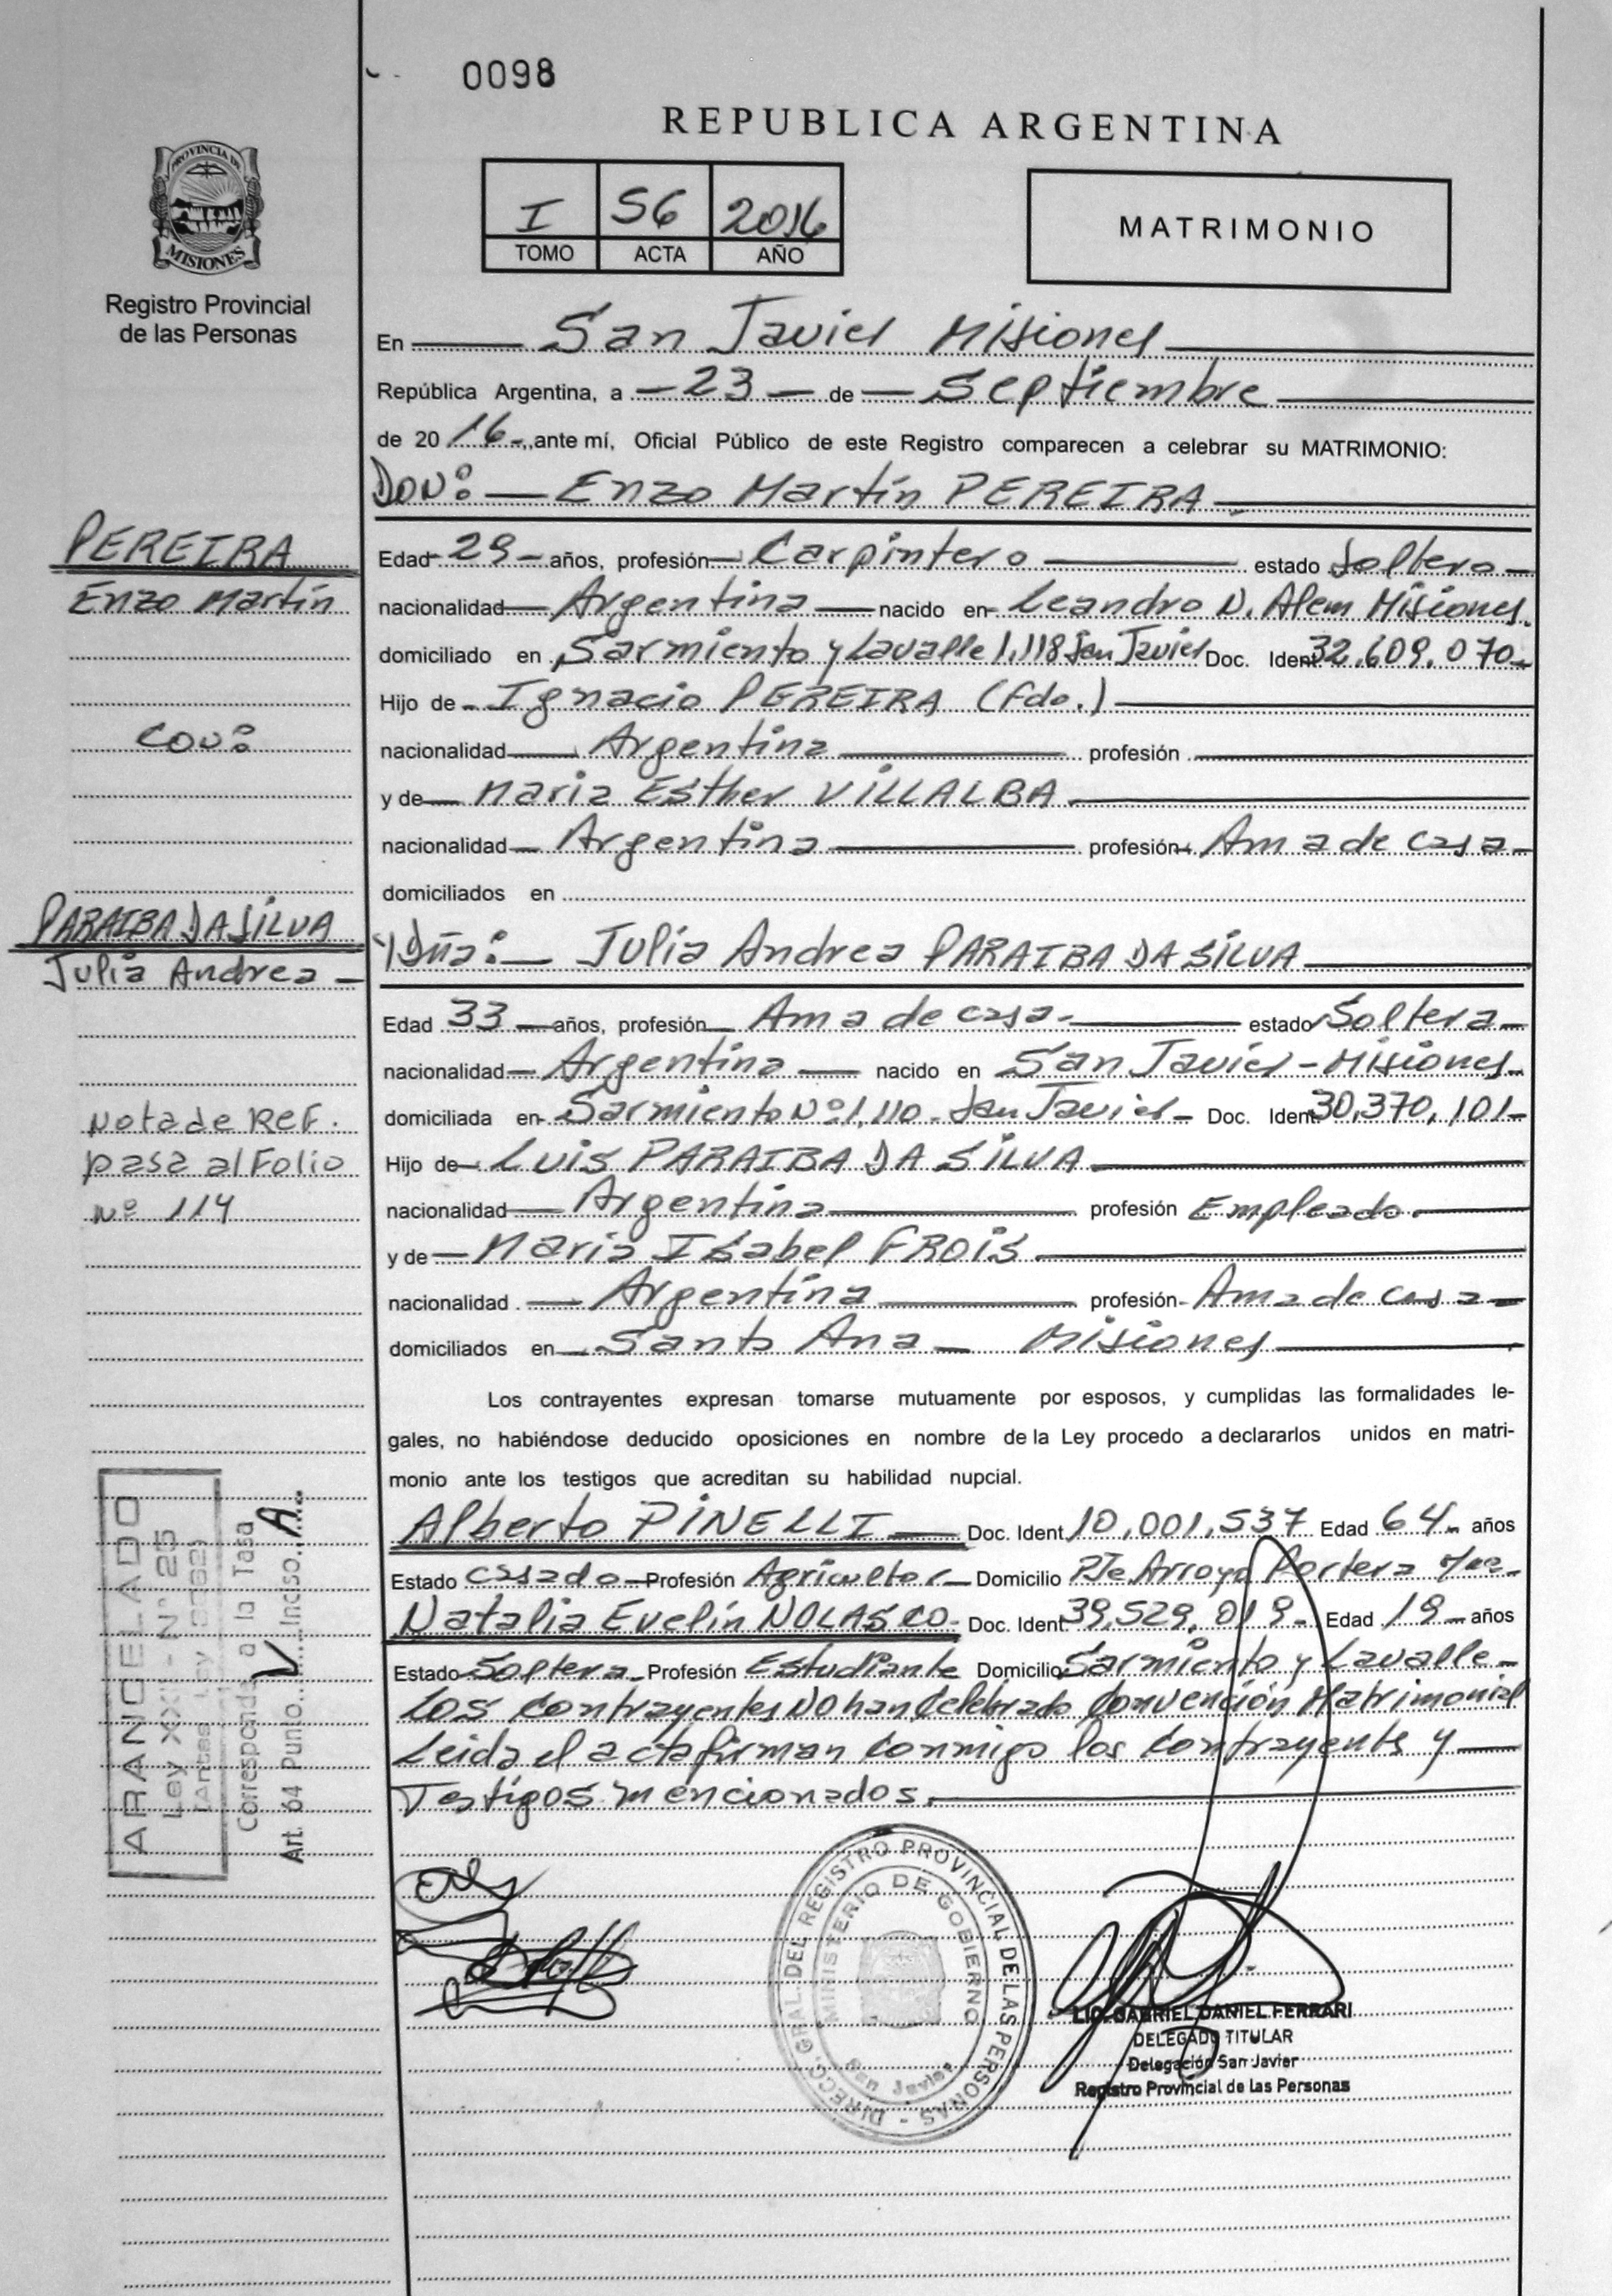 0098
REPUBLICA ARGENTINA
I 56 2016
TOMO ACTA AÑO
MATRIMONIO
PROVINCIA DE
MISIONES
Registro Provincial
de las Personas
En San Javier Misiones
República Argentina, a -23- de - Septiembre
de 20 16-, ante mí, Oficial Público de este Registro comparecen a celebrar su MATRIMONIO:
DON: - Enzo Martín PEREIRA
PEREIRA
Enzo Martín
con:
PARAIBA DA SILVA
Julia Andrea -
Nota de REF.
pasa al Folio
Nº 114
Edad -29- años, profesión - Carpintero estado Soltero -
nacionalidad - Argentina - nacido en - Leandro N. Alem Misiones.
domiciliado en Sarmiento y Lavalle 1.118 San Javier Doc. Ident. 32.609.070-
Hijo de - Ignacio PEREIRA (fdo.)
nacionalidad - Argentina profesión
y de - Maria Esther VILLALBA
nacionalidad - Argentina profesión - Ama de casa -
domiciliados en
Y Dña: - Julia Andrea PARAIBA DA SILVA
Edad 33 - años, profesión - Ama de casa - estado Soltera -
nacionalidad - Argentina - nacido en San Javier - Misiones -
domiciliada en - Sarmiento Nº 1.110 - San Javier - Doc. Ident. 30.370.101-
Hijo de - Luis PARAIBA DA SILVA
nacionalidad - Argentina profesión Empleado.
y de - Maria Isabel FROIS
nacionalidad - Argentina profesión - Ama de casa -
domiciliados en - Santa Ana - Misiones
Los contrayentes expresan tomarse mutuamente por esposos, y cumplidas las formalidades le-
gales, no habiéndose deducido oposiciones en nombre de la Ley procedo a declararlos unidos en matri-
monio ante los testigos que acreditan su habilidad nupcial.
Alberto PINELLI - Doc. Ident. 10.001.537 Edad 64- años
Estado casado - Profesión Agricultor - Domicilio Pje. Arroyo Portera
Natalia Evelin NOLASCO - Doc. Ident. 39.529.019- Edad 19- años
Estado Soltera - Profesión Estudiante Domicilio Sarmiento y Lavalle -
Los contrayentes NO han Celebrado Convención Matrimonial
Leida el acta firman conmigo los contrayentes y
Testigos mencionados.
ARANCELADO
Ley XXII - Nº 25
(Antes Ley
Corresponde a la Tasa
Art. 64 Punto V Inciso A
DIRECC. GRAL. DEL REGISTRO PROVINCIAL DE LAS PERSONAS -
MINISTERIO DE GOBIERNO
San Javier
LIC. GABRIEL DANIEL FERRARI
DELEGADO TITULAR
Delegación San Javier
Registro Provincial de las Personas